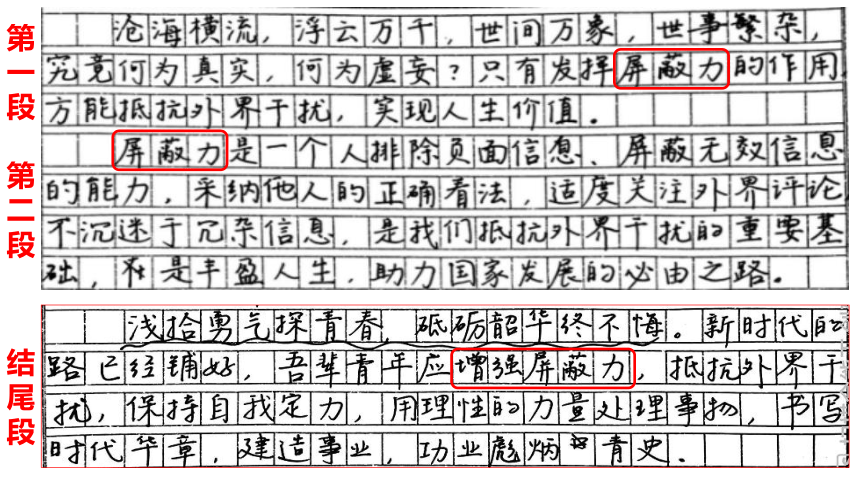 第一段
沧海横流，浮云万千，世间万象，世事繁杂，
究竟何为真实，何为虚妄？只有发挥屏蔽力的作用，
方能抵抗外界干扰，实现人生价值。
第二段
屏蔽力是一个人排除负面信息、屏蔽无效信息
的能力，采纳他人的正确看法，适度关注外界评论，
不沉迷于冗杂信息，是我们抵抗外界干扰的重要基
础，是丰盈人生，助力国家发展的必由之路。
结尾段
浅拾勇气探青春，砥砺韶华终不悔。新时代的
路已经铺好，吾辈青年应增强屏蔽力，抵抗外界干
扰，保持自我定力，用理性的力量处理事物，书写
时代华章，建造事业，功业彪炳青史．